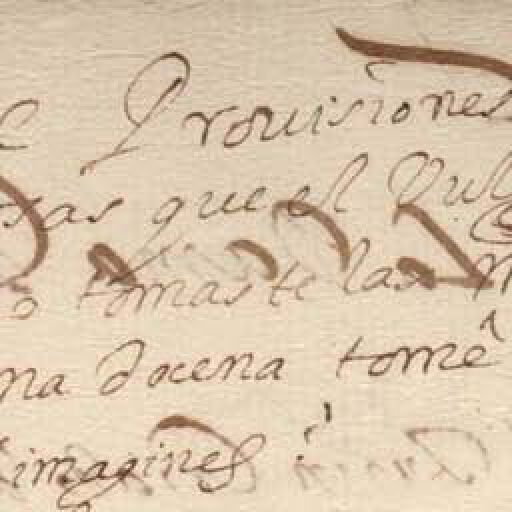 Prouisiones
sas que el Vul
tomaste las
na docena tomê
imagines